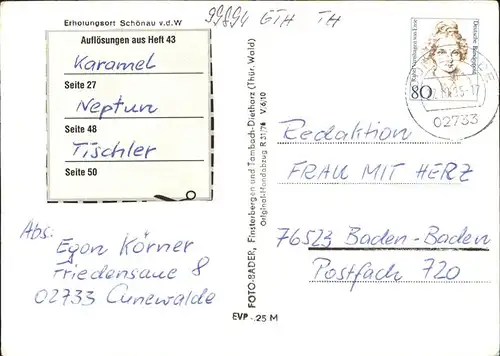 99894 GTH TH
Erholungsort Schönau v.d.W
Auflösungen aus Heft 43
Karamel
Seite 27
Neptun
Seite 48
Tischler
Seite 50
Abs: Egon Körner
Friedensaue 8
02733 Cunewalde
FOTO-BADER, Finsterbergen und Tambach-Dietharz (Thür. Wald)
Original-Handabzug R 31/76 V.6/10
EVP -.25 M
Deutsche Bundespost
80
02733
Redaktion
FRAU MIT HERZ
76523 Baden-Baden
Postfach 720